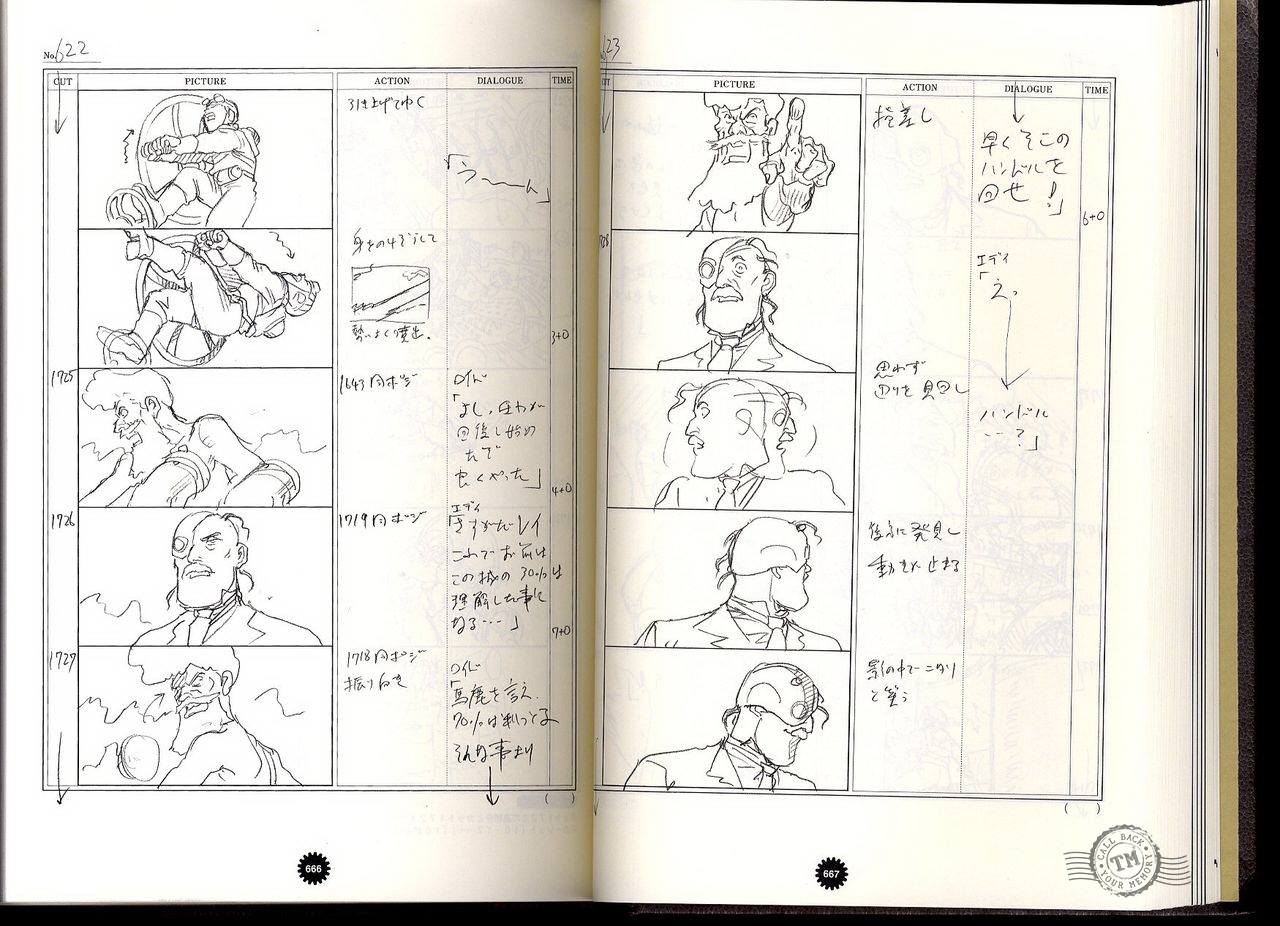 No. 622
CUT PICTURE ACTION DIALOGUE TIME
引き上げてゆく
「うーーん」
身をのけぞらして
勢いよく噴出。
3+0
1725
1643同ポジ
ロイド
「よし、圧力が
回復し始め
たぞ
良くやった」
4+0
1726
1719同ポジ
エディ
「さすがだレイ
これでお前は
この城の30%は
理解した事に
なる…」
7+0
1727
1718同ポジ
振り向き
ロイド
「馬鹿を言え、
70%は判っとる
そんな事より
( )
666
623
PICTURE ACTION DIALOGUE TIME
指差し
早くそこの
ハンドルを
回せ!」
6+0
エディ
「え。
思わず
辺りを見回し
ハンドル
…?」
後方に発見し
動きを止める
影の中でニヤリ
と笑う
( )
667
CALL BACK
TM
YOUR MEMORY